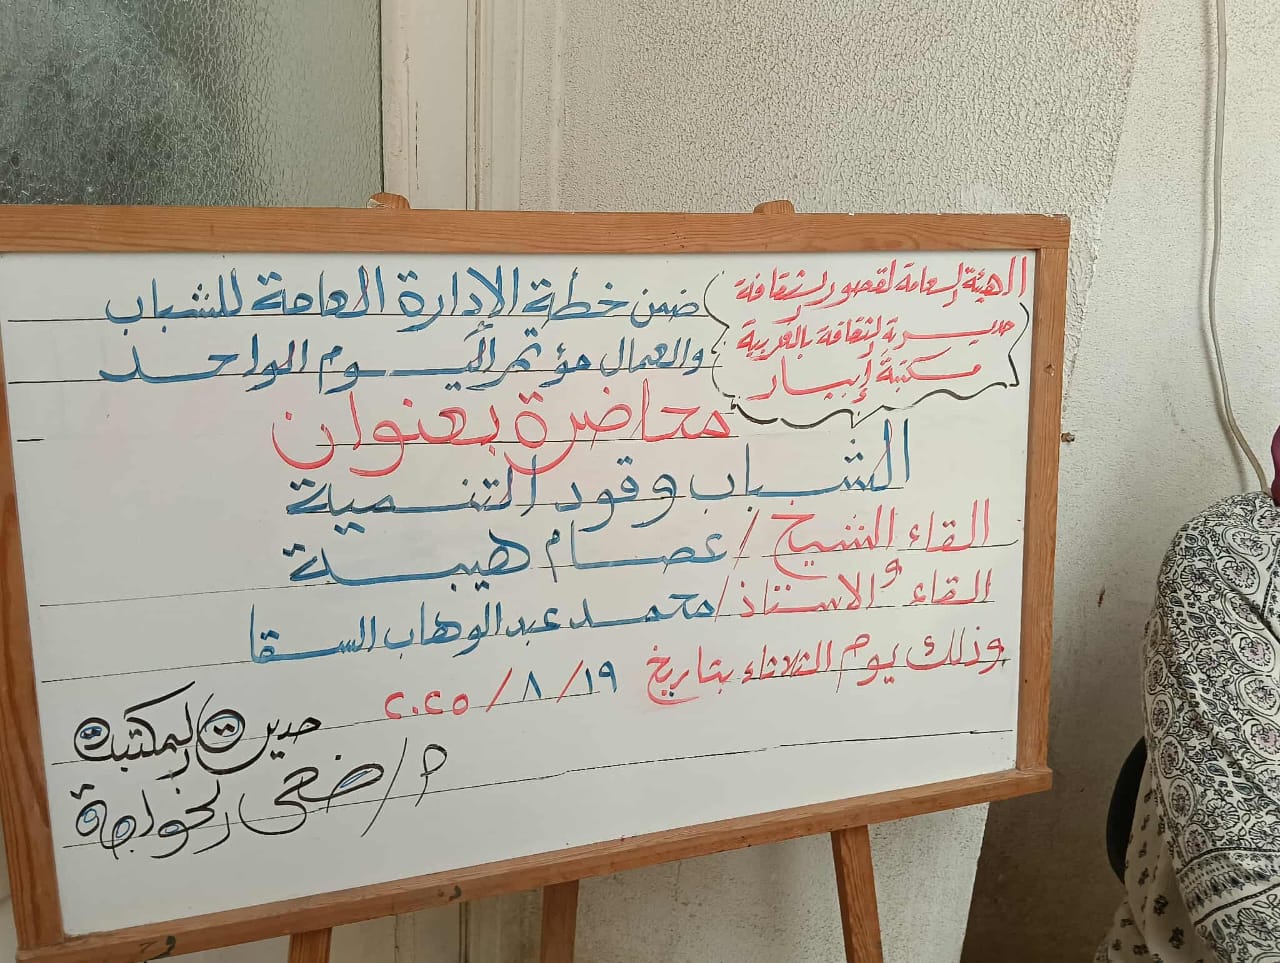 الهيئة العامة لقصور الثقافة
مديرية الثقافة بالغربية
مكتبة إبيار
ضمن خطة الإدارة العامة للشباب
والعمال مؤتمر اليوم الواحد
محاضرة بعنوان
الشباب وقود التنمية
القاء الشيخ / عصام هيبة
و
القاء الاستاذ / محمد عبدالوهاب السقا
وذلك يوم الثلاثاء بتاريخ ١٩ / ٨ / ٢٠٢٥
مديرة المكتبة
م / ضحى الخواجة